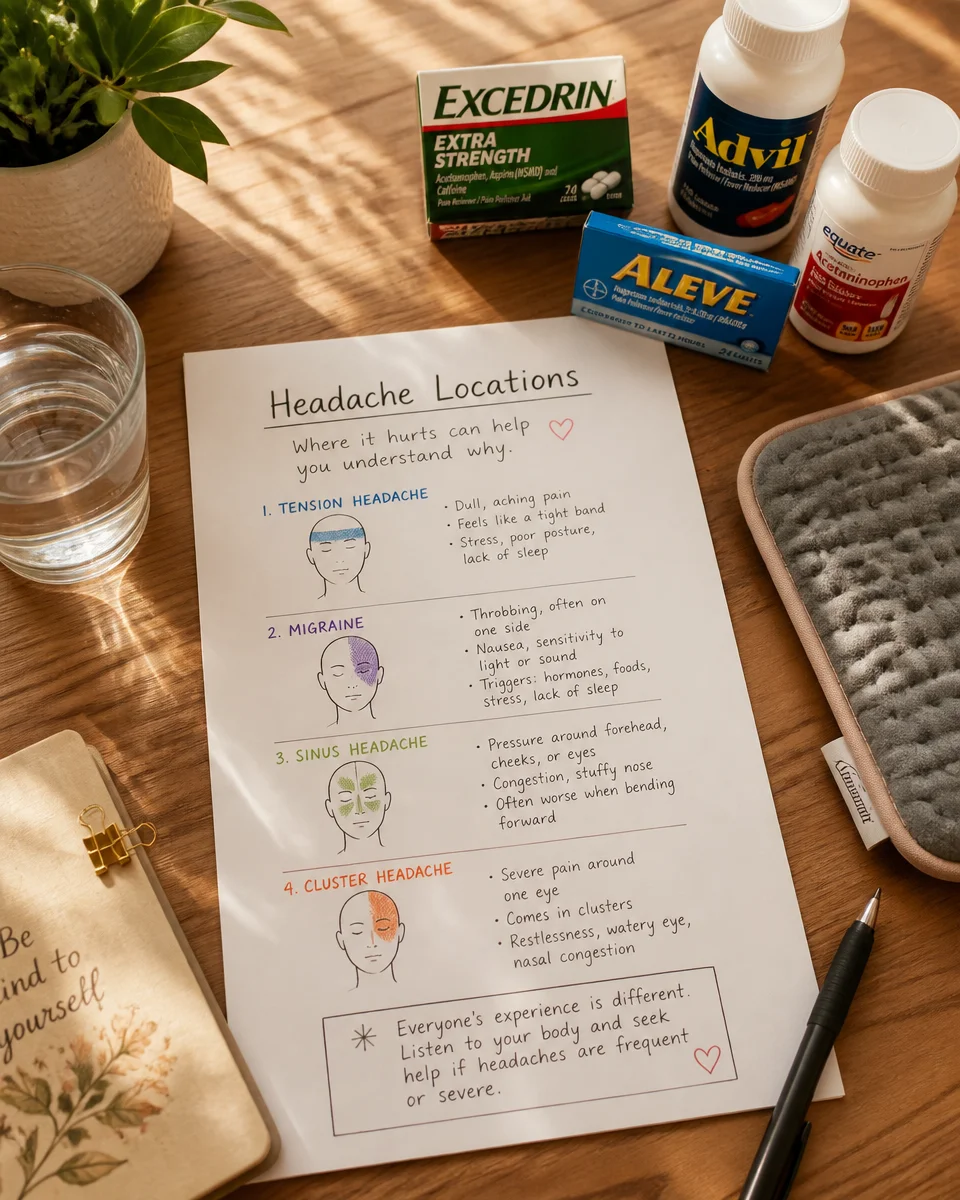 EXCEDRIN
EXTRA
STRENGTH
Acetaminophen, Aspirin (NSAID) and
Caffeine
Pain Reliever / Pain Reliever Aid
24
Advil
equate
Acetaminophen
ALEVE
24
Headache Locations
Where it hurts can help
you understand why.
1. TENSION HEADACHE
• Dull, aching pain
• Feels like a tight band
• Stress, poor posture,
lack of sleep
2. MIGRAINE
• Throbbing, often on
one side
• Nausea, sensitivity to
light or sound
• Triggers: hormones, foods,
stress, lack of sleep
3. SINUS HEADACHE
• Pressure around forehead,
cheeks, or eyes
• Congestion, stuffy nose
• Often worse when bending
forward
4. CLUSTER HEADACHE
• Severe pain around
one eye
• Comes in clusters
• Restlessness, watery eye,
nasal congestion
Everyone's experience is different.
Listen to your body and seek
help if headaches are frequent
or severe.
Be
ind to
yourself